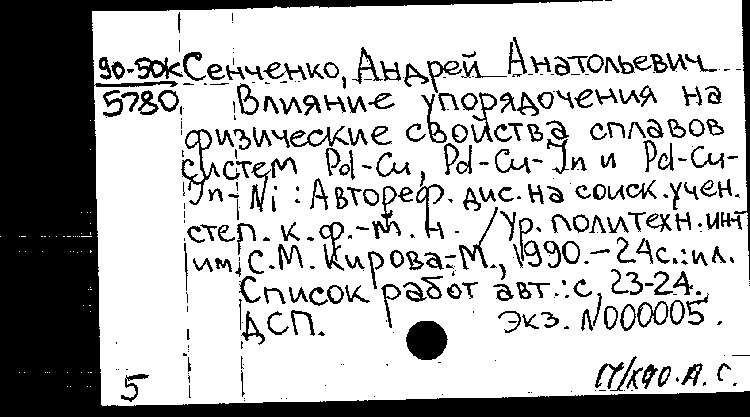 90-50К Сенченко, Андрей Анатольевич
5780 Влияние упорядочения на
физические свойства сплавов
систем Pd-Cu, Pd-Cu-In и Pd-Cu-
In-Ni : Автореф. дис. на соиск. учен.
степ. к. ф.-м. н. / Ур. политехн. инт
им. С.М. Кирова.-М., 1990.-24с.:ил.
Список работ авт.: с. 23-24.
ДСП. Экз. N000005.
5